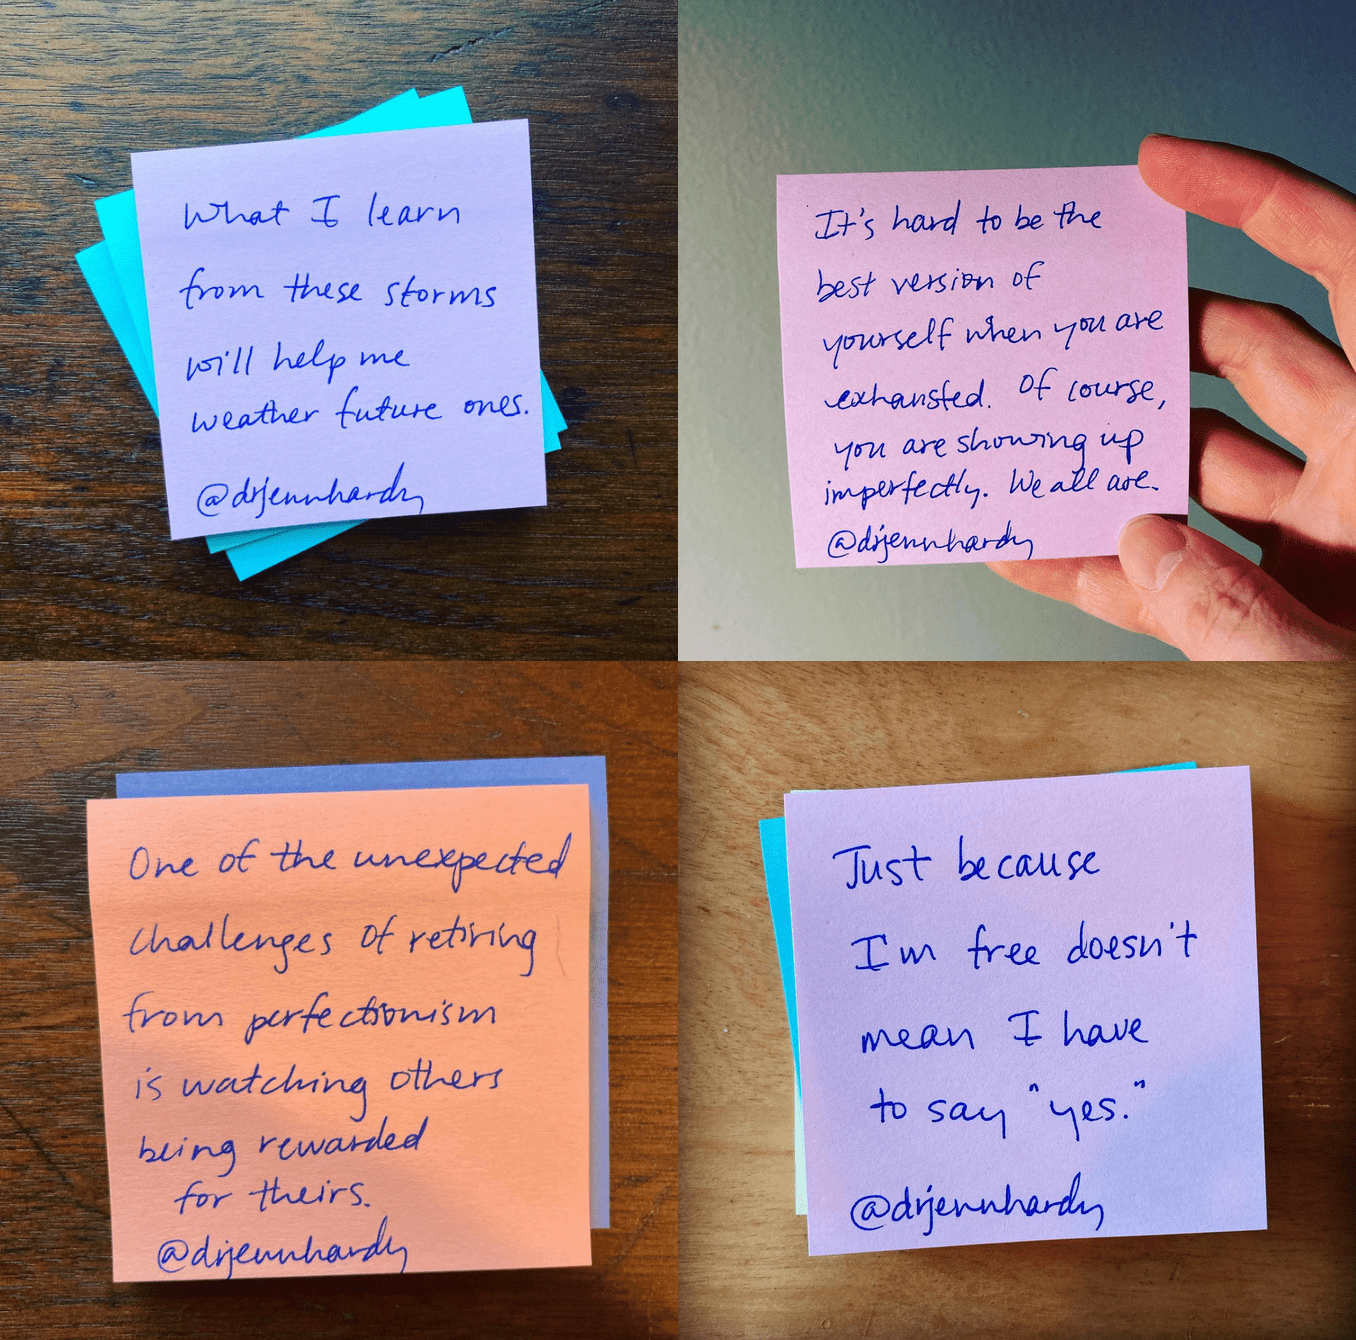 What I learn
from these storms
will help me
weather future ones.
@drjennhardy
It's hard to be the
best version of
yourself when you are
exhausted. Of course,
you are showing up
imperfectly. We all are.
@drjennhardy
One of the unexpected
challenges of retiring
from perfectionism
is watching others
being rewarded
for theirs.
@drjennhardy
Just because
I'm free doesn't
mean I have
to say "yes."
@drjennhardy